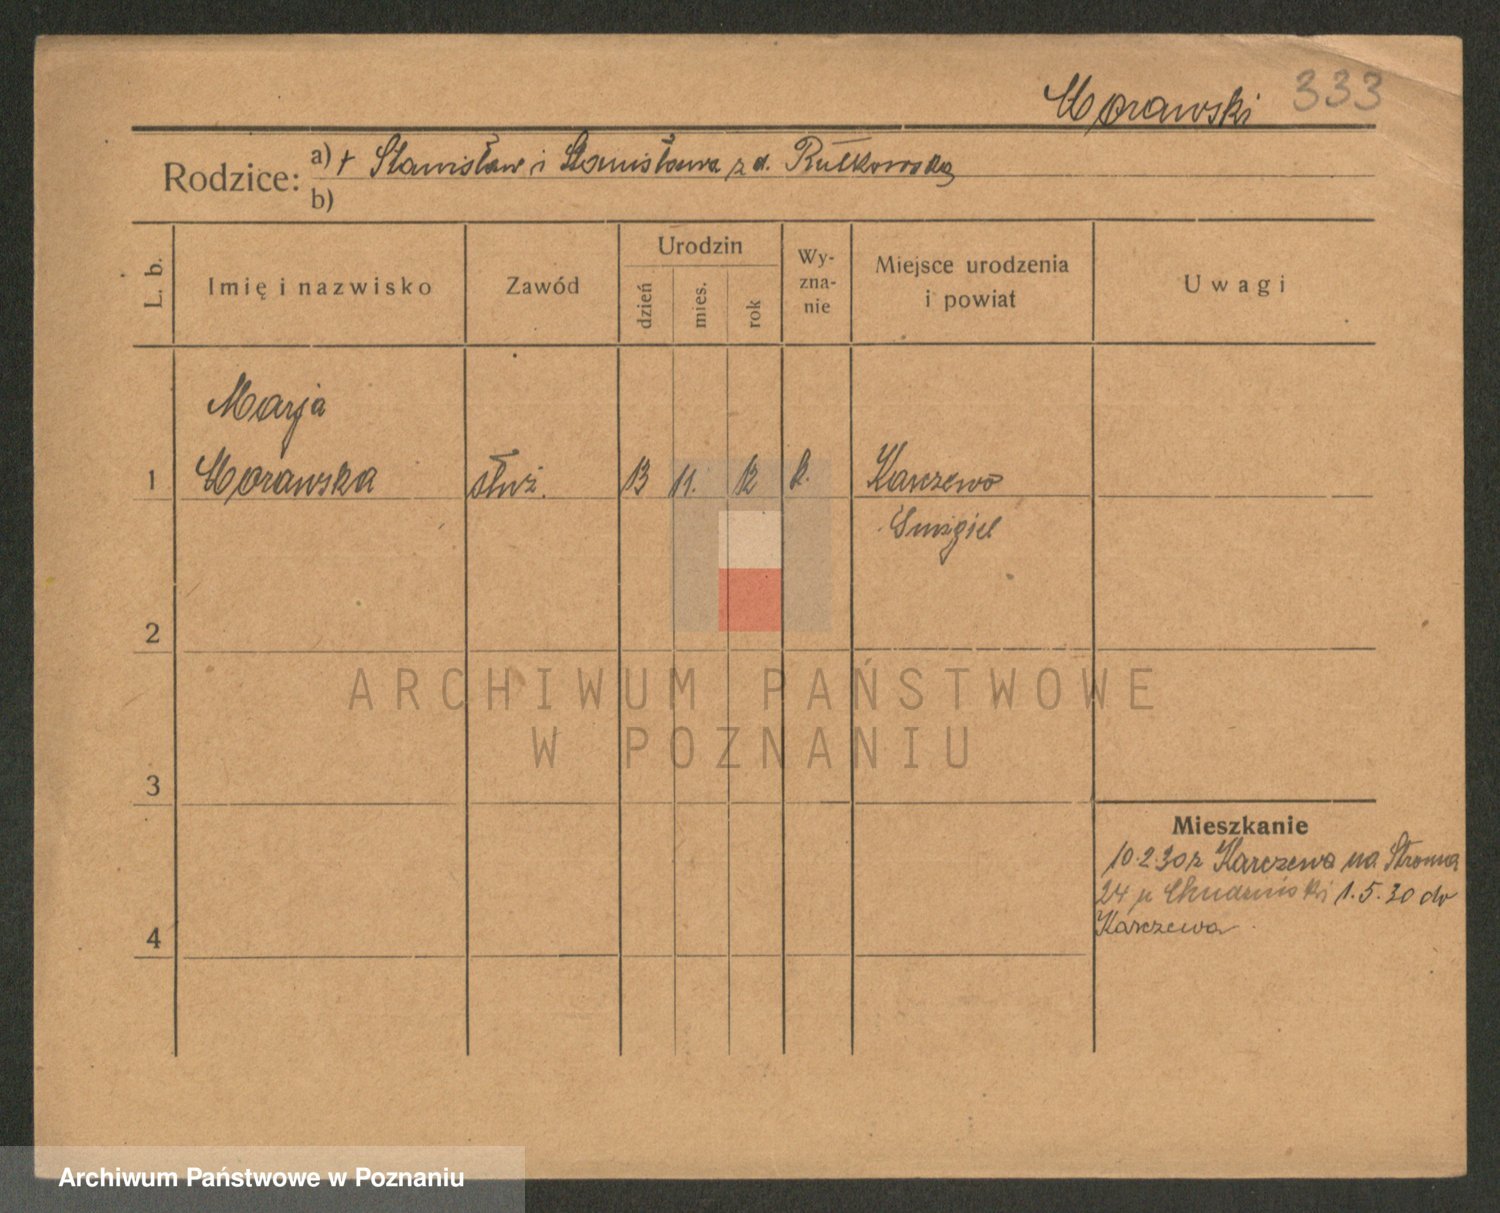 Morawski 333
Rodzice: a) + Stanisław i Stanisława z d. Rutkowska
b)
L. b.
Imię i nazwisko
Zawód
Urodzin
dzień
mies.
rok
Wy-
zna-
nie
Miejsce urodzenia
i powiat
Uwagi
Marja
1 Morawska służ. 13 11. 12 k. Karczewo
Śmigiel
2
ARCHIWUM PAŃSTWOWE
W POZNANIU
3
Mieszkanie
10.2.30 z Karczewa na Stroma
24 p. 1.5.30 do
Karczewa
4
Archiwum Państwowe w Poznaniu